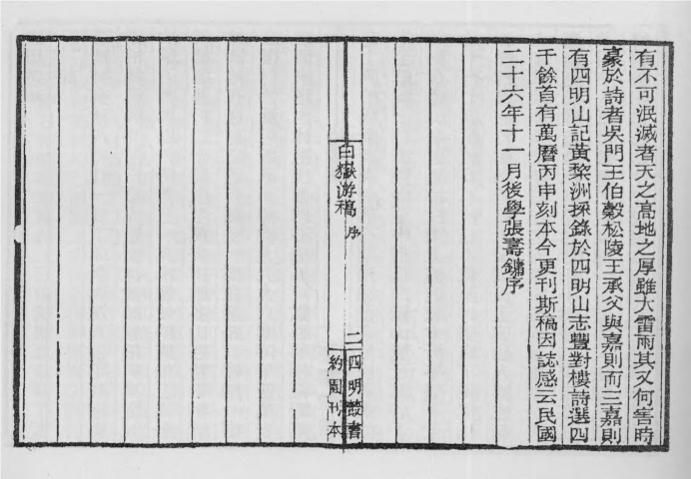 有不可泯滅者天之高地之厚雖大雷雨其又何害時
豪於詩者吳門王伯穀松陵王承父與嘉則而三嘉則
有四明山記黃棃洲採錄於四明山志豐對樓詩選四
千餘首有萬曆丙申刻本今更刊斯稿因誌感云民國
二十六年十一月後學張壽鏞序
白嶽游稿 序
二
四明叢書
約園刊本